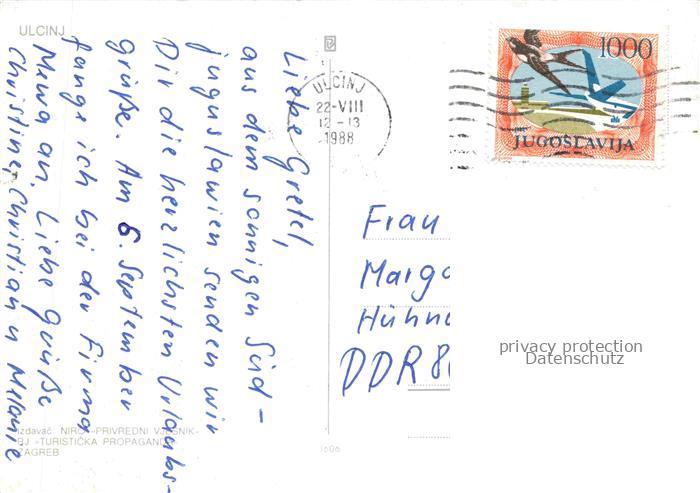 ULCINJ
Liebe Gretel,
aus dem sonnigen Süd-
jugoslawien senden wir
Dir die herzlichsten Urlaubs-
grüße. Am 6. September
fange ich bei der Firma
Mewa an. Liebe Grüße
Christine, Christian u Melanie
ULCINJ
22-VIII
12-13
1988
1000
JUGOSLAVIJA
Frau
Marga
Hühn
DDR 8
privacy protection
Datenschutz
Izdavač: NIRO »PRIVREDNI VJESNIK«
RJ »TURISTIČKA PROPAGANDA«
ZAGREB